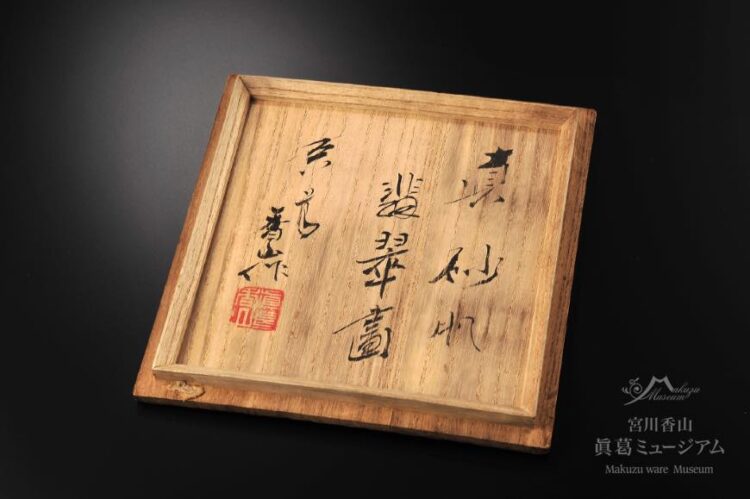 真砂
翡翠畫
真葛
香山作
真葛
香山
Makuzu
Museum
宮川香山
眞葛ミュージアム
Makuzu ware Museum